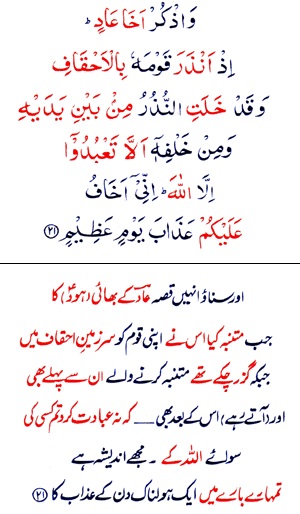 وَاذْكُرْ اَخَا عَادٍ ؕ
اِذْ اَنْذَرَ قَوْمَهٗ بِالْاَحْقَافِ
وَ قَدْ خَلَتِ النُّذُرُ مِنْۢ بَيْنِ يَدَيْهِ
وَمِنْ خَلْفِهٖۤ اَلَّا تَعْبُدُوْۤا
اِلَّا اللّٰهَ ؕ اِنِّىْۤ اَخَافُ
عَلَيْكُمْ عَذَابَ يَوْمٍ عَظِيْمٍ ﴿۲۱﴾
اور سناؤ انہیں قصہ عاد کے بھائی (ہودؑ) کا
جب متنبہ کیا اس نے اپنی قوم کو سرزمینِ احقاف میں
جبکہ گزر چکے تھے متنبہ کرنے والے ان سے پہلے بھی
اور (آتے رہے) اس کے بعد بھی ــــ کہ نہ عبادت کرو تم کسی کی
سوائے اللہ کے ۔ مجھے اندیشہ ہے
تمہارے بارے میں ایک ہولناک دن کے عذاب کا ﴿۲۱﴾